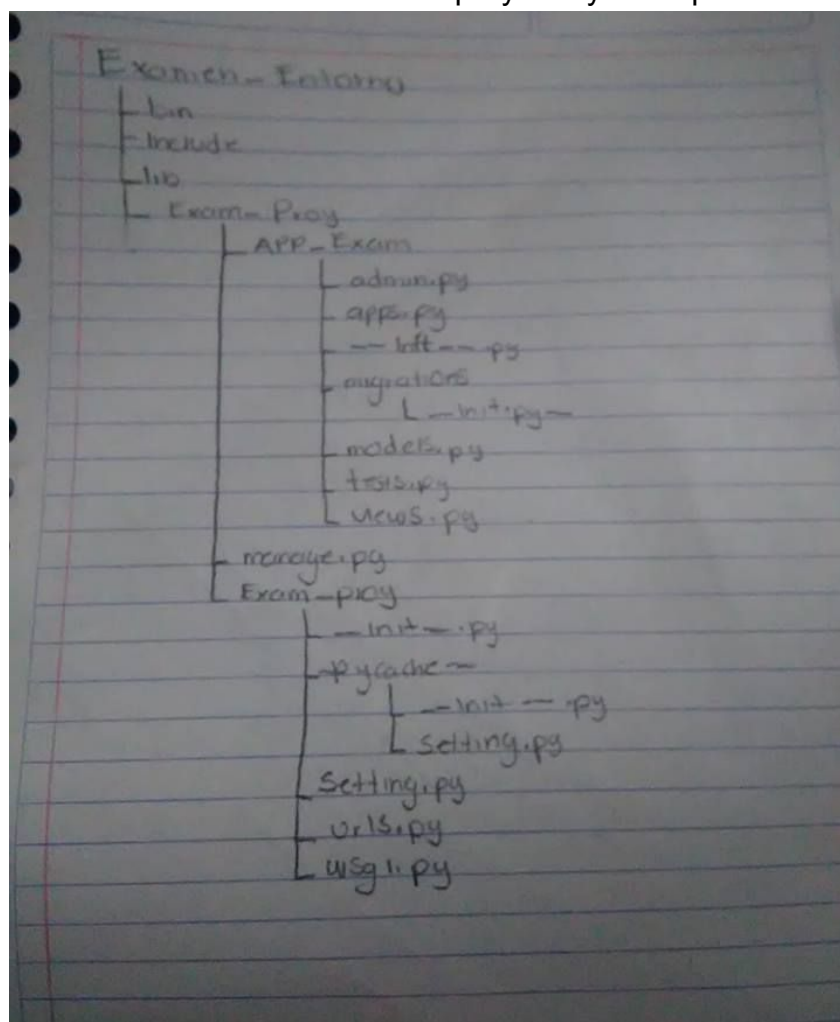 Examen_Entorno
bin
Include
lib
Exam_Proy
APP_Exam
admin.py
apps.py
__Init__.py
migrations
__init.py__
models.py
tests.py
views.py
manage.py
Exam_proy
__Init__.py
pycache__
__Init__.py
Setting.py
Setting.py
urls.py
wsgi.py